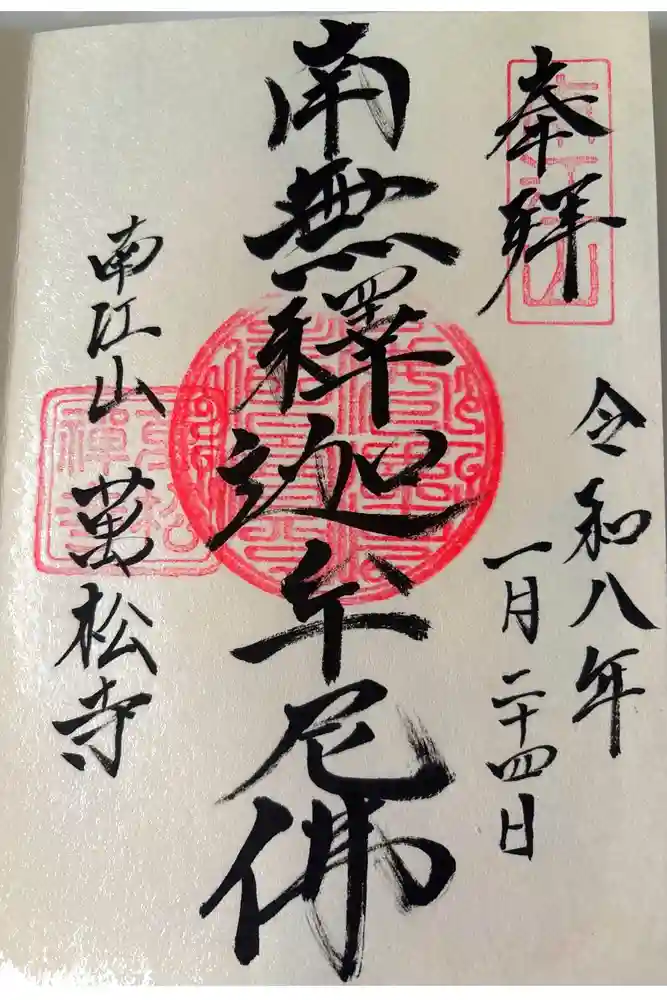 奉拜
令和八年
一月二十四日
南無釋迦牟尼佛
南江山 萬松寺